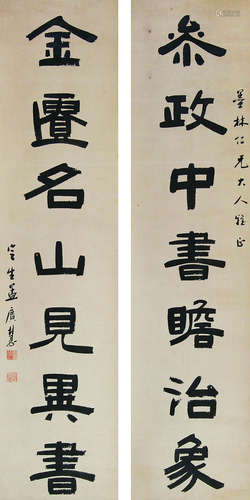 墨林仁兄大人雅正
叅政中書瞻治象
金匱名山見異書
定生孟廣慧